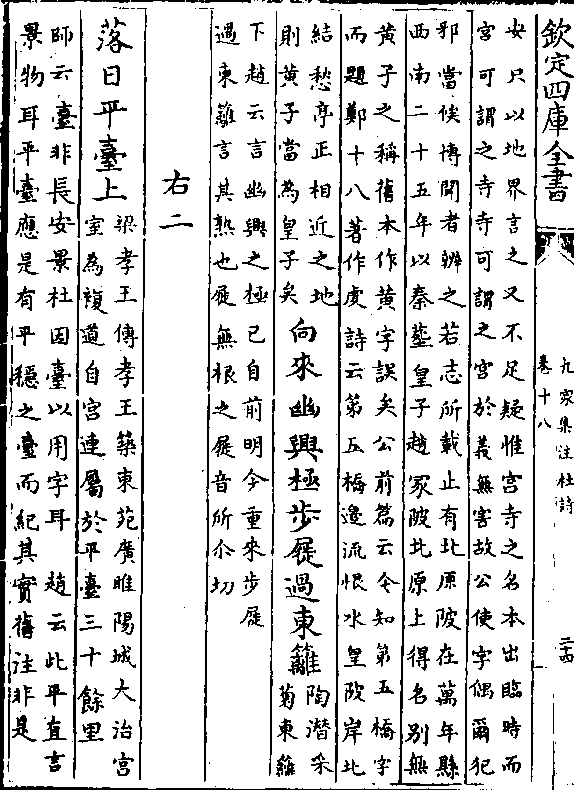 欽定四庫全書
九家集注杜詩
卷十八
二十四
安只以地界言之又不足疑惟宮寺之名本出臨時而
宮可謂之寺寺可謂之宮於義無害故公使字偶爾犯
邪當俟博聞者辨之若志所載止有北原陂在萬年縣
西南二十五年以秦塟皇子趙冢陂北原上得名别無
黄子之稱舊本作黄字誤矣公前篇云令知第五橋字
而題鄭十八著作虔詩云第五橋邊流恨水皇陂岸北
結愁亭正相近之地
則黄子當為皇子矣
向來幽興極步屧過東籬
陶潜采
菊東籬
下趙云言幽興之極已自前明今重來步屧
過東籬言其熟也屧無根之屐音所尒切
右二
落日平臺上
梁孝王傳孝王築東苑廣睢陽城大治宮
室為複道自宮連屬於平臺三十餘里
師云臺非長安景杜因臺以用字耳 趙云此平直言
景物耳平臺應是有平穩之臺而紀其實舊注非是